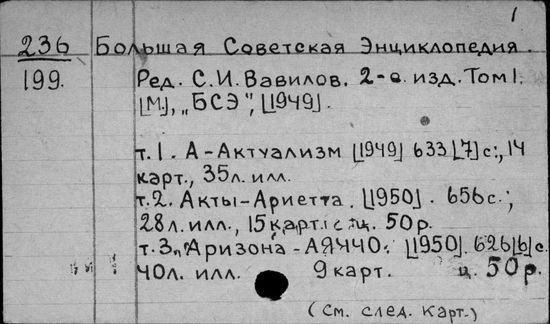 1
236 Большая Советская Энциклопедия.
199. Ред. С.И. Вавилов. 2-е изд. Том 1.
[М.], „БСЭ", [1949].
т. 1. А-Актуализм [1949] 633 [7] с., 14
карт., 35 л. илл.
т. 2. Акты-Ариетта. [1950]. 656 с.;
28 л. илл., 15 карт. ц. 50 р.
т. 3. „Аризона - Аяччо. [1950]. 626 [6] с.
40 л. илл. 9 карт. ц. 50 р.
(См. след. карт.)